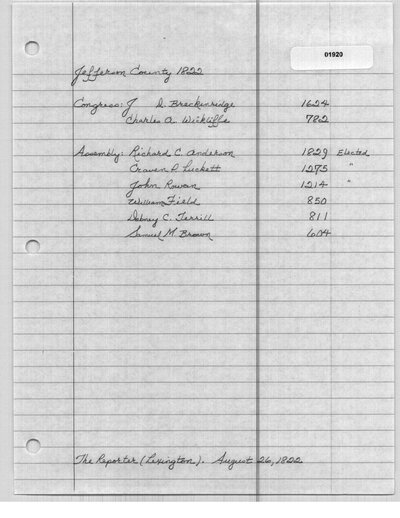 01920
Jefferson County 1822
Congress: J D. Breckenridge 1624
Charles A. Wickliffe 782
Assembly: Richard C. Anderson 1829 Elected
Craven P. Luckett 1275 "
John Rowan 1214 "
William Field 850
Dabney C. Terrill 811
Samuel M. Brown 604
The Reporter (Lexington). August 26, 1822.